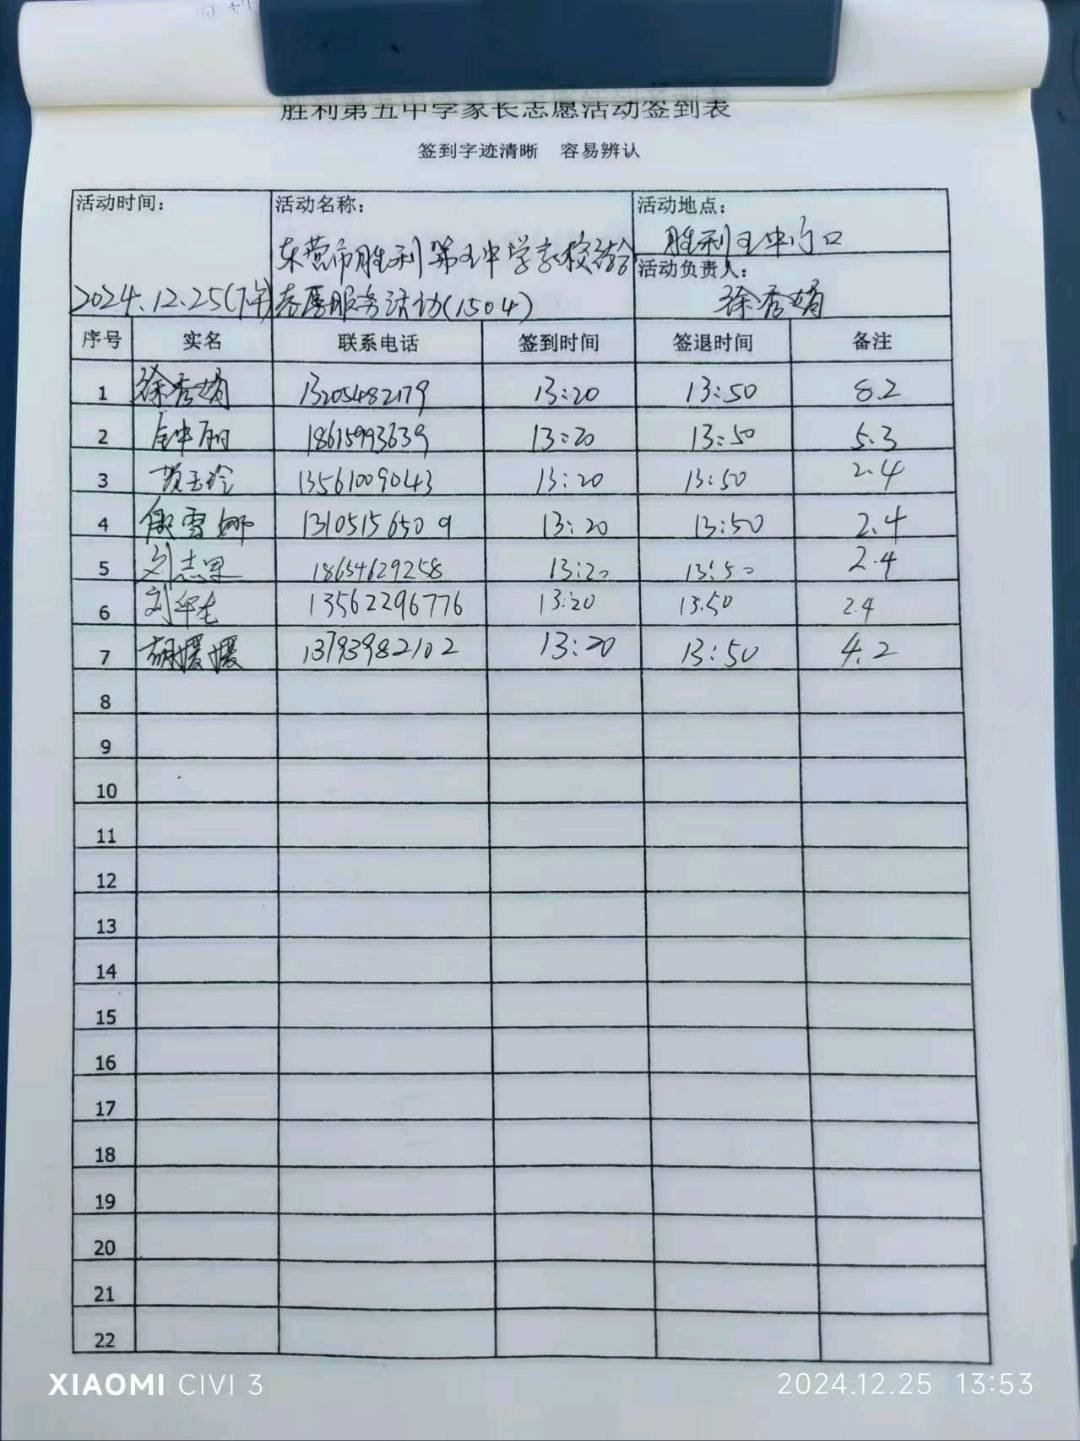 胜利第五中学家长志愿活动签到表
签到字迹清晰 容易辨认
活动时间： 活动名称： 活动地点：
东营市胜利第五中学家校 胜利五中门口
活动负责人：
2024.12.25(下午) 志愿服务活动(1504) 徐秀娟
序号 实名 联系电话 签到时间 签退时间 备注
1 徐秀娟 13205482179 13:20 13:50 8.2
2 钟丽 18615993639 13:20 13:50 5.3
3 贾玉玲 13561009043 13:20 13:50 2.4
4 雪娜 13105156509 13:20 13:50 2.4
5 刘志 18654629258 13:20 13:50 2.4
6 刘 13562296776 13:20 13:50 2.4
7 胡媛媛 13793982102 13:20 13:50 4.2
8
9
10
11
12
13
14
15
16
17
18
19
20
21
22
XIAOMI CIVI 3 2024.12.25 13:53